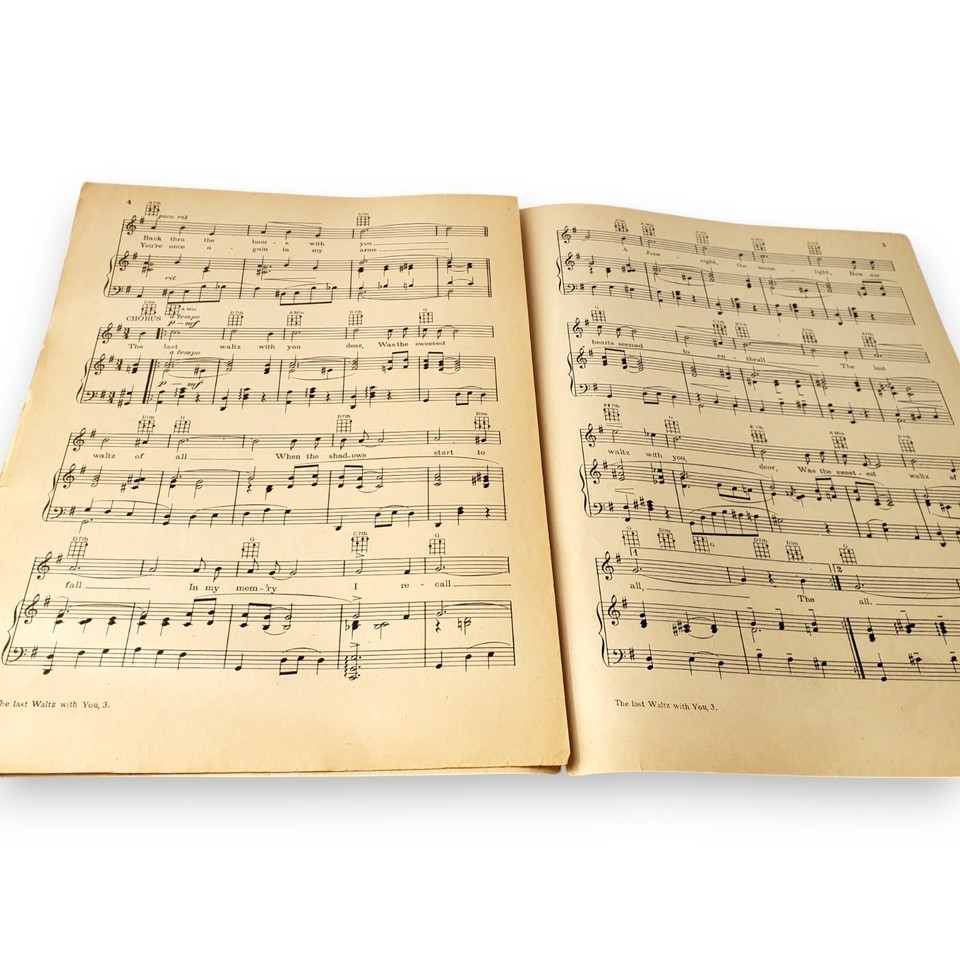 4
poco rit.
Back thru the hour - s with you
You're once a - gain in my arms
rit.
CHORUS
a tempo
The last waltz with you dear, Was the sweetest
a tempo
waltz of all When the shad-ows start to
D7th G D7th
fall In my mem-'ry I re - call
D7th G C7th G
The last Waltz with You, 3.
A June night, the moon - light, How our
hearts seemed to en - thrall The last
waltz with you, dear, Was the sweet - est waltz of
1 2
all, The all.
The last Waltz with You, 3.